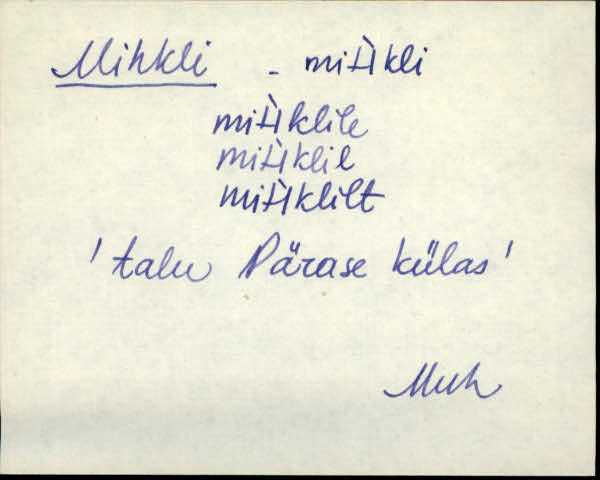 Mihkli - mìHkli
mìHklile
mìHklil
mìHklilt
'talu Pärase külas'
Muh